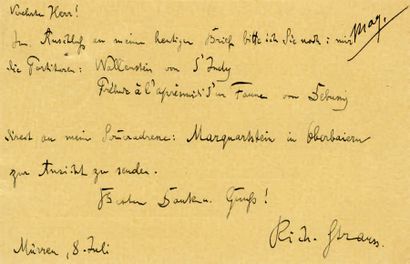 Verehrter Herr!
Im Anschluß an meinen heutigen Brief bitte ich Sie noch: mir
May.
die Partituren: Wallenstein von d'Indy
Prélude à l'aprèsmidi d'un Faune von Debussy
direct an meine Sommeradresse: Marquartstein in Oberbaiern
zur Ansicht zu senden.
Besten Dank u. Gruß!
Rich. Strauss.
Mürren, 8. Juli